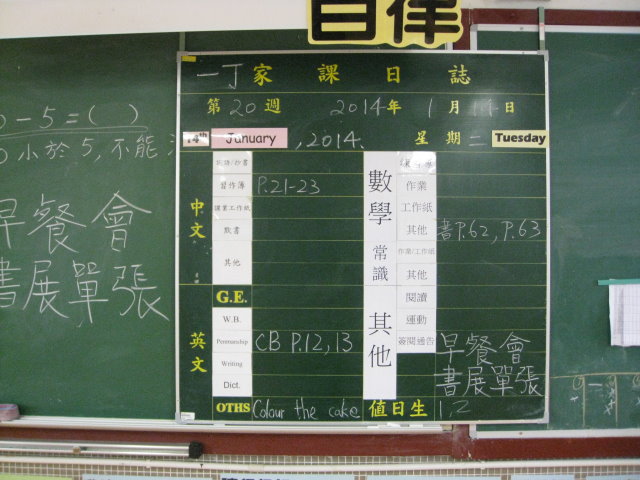 自律
一丁家課日誌
第20週 2014年1月14日
14th January, 2014. 星期二 Tuesday
-5=( )
小於5,不能
早餐會
書展單張
中文
詞語/抄書
習作簿 P.21-23
課業工作紙
默書
其他
英文
G.E.
W.B.
Penmanship CB P.12,13
Writing
Dict.
OTHS Colour the cake
數學
作業
工作紙
其他 書P.62, P.63
常識
作業/工作紙
其他
其他
閱讀
運動
簽閱通告 早餐會
書展單張
值日生 1,2